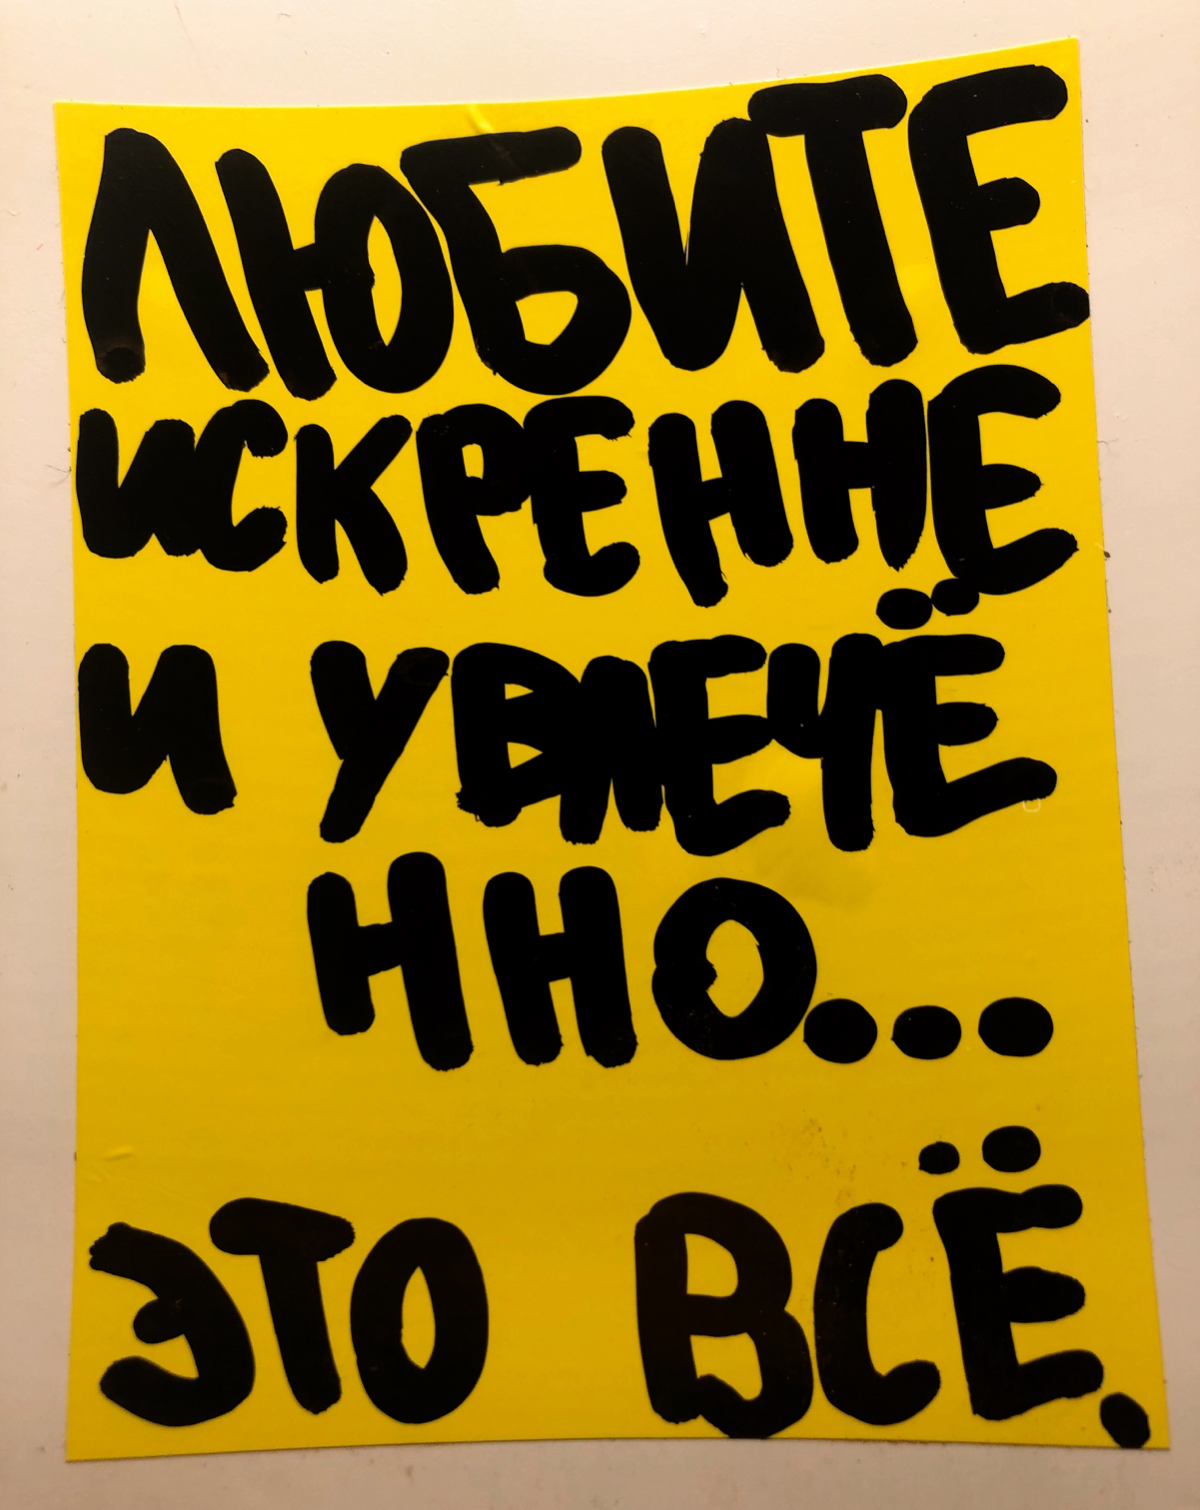 ЛЮБИТЕ
ИСКРЕННЕ
И УВЛЕЧЁ
ННО...
ЭТО ВСЁ.